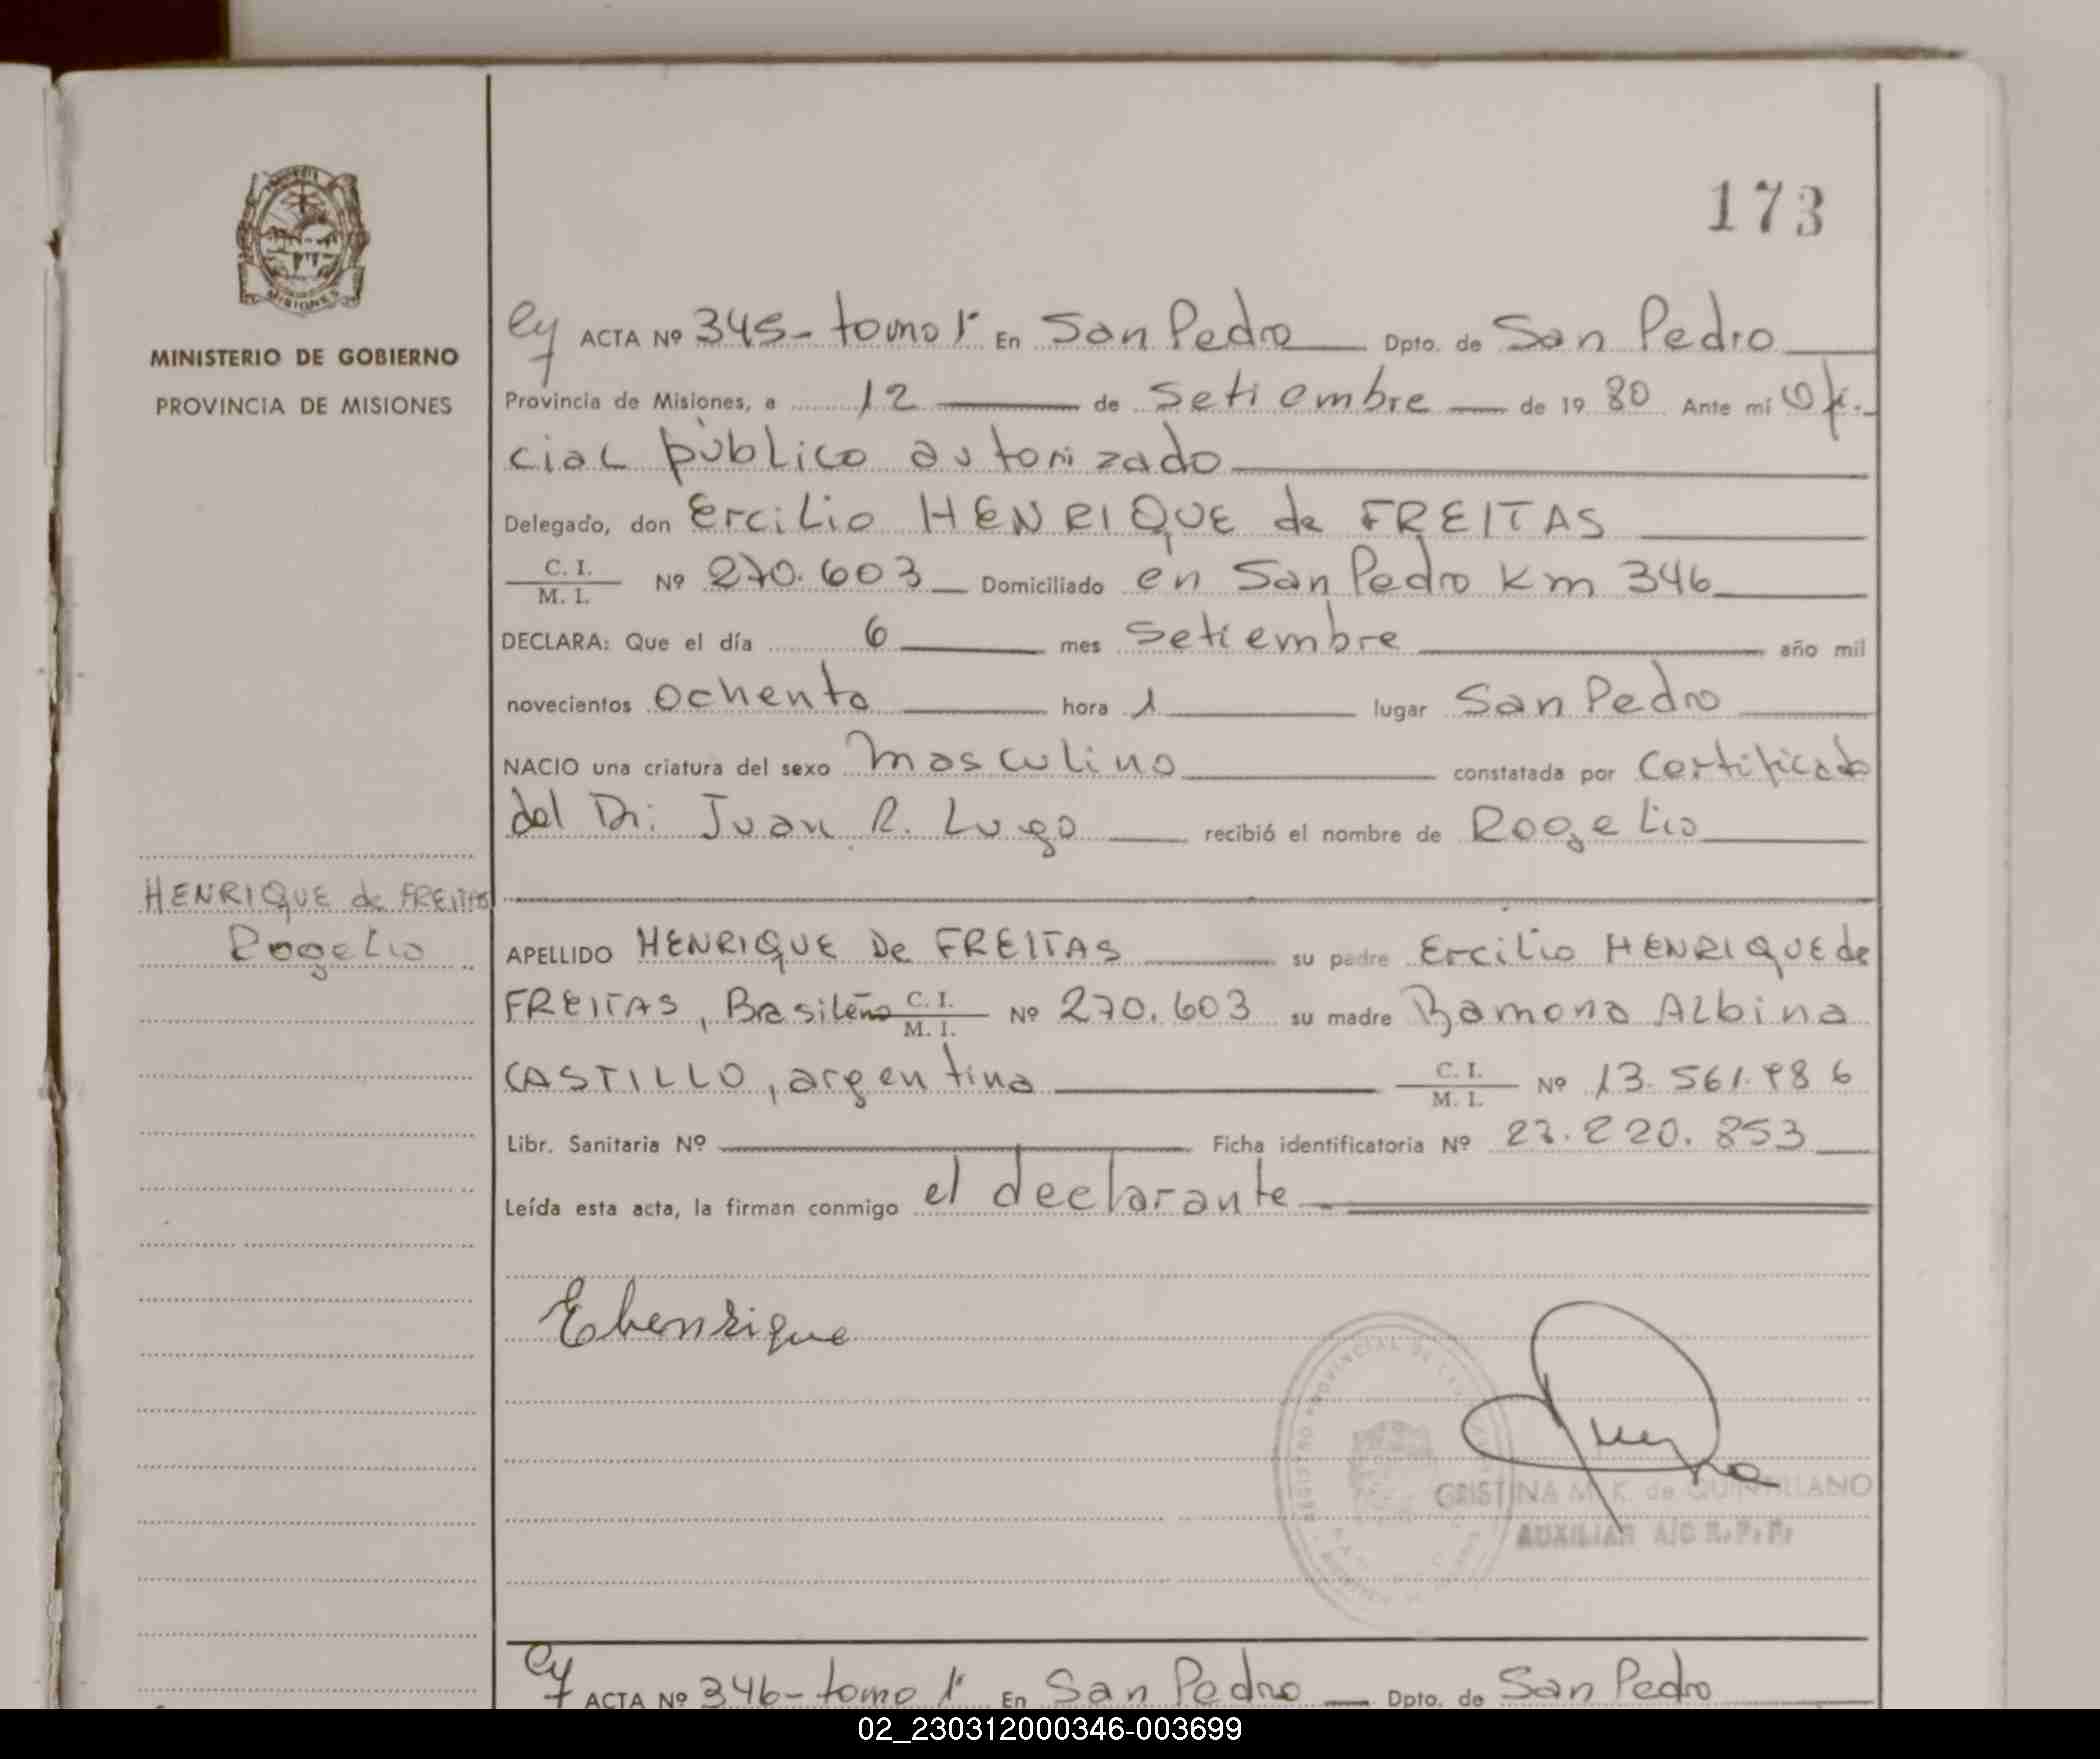 173
MISIONES
MINISTERIO DE GOBIERNO
PROVINCIA DE MISIONES
HENRIQUE de FREITAS
Rogelio
Ley ACTA Nº 345-tomo 1º En San Pedro Dpto. de San Pedro
Provincia de Misiones, a 12 de Setiembre de 19 80 Ante mí Ofi-
cial público autorizado
Delegado, don Ercilio HENRIQUE de FREITAS
C. I. / M. I. Nº 270.603 Domiciliado en San Pedro Km 346
DECLARA: Que el día 6 mes Setiembre año mil
novecientos ochenta hora 1 lugar San Pedro
NACIO una criatura del sexo masculino constatada por Certificado
del Dr: Juan R. Lugo recibió el nombre de Rogelio
APELLIDO HENRIQUE De FREITAS su padre Ercilio HENRIQUE de
FREITAS, Brasileño C. I. / M. I. Nº 270.603 su madre Ramona Albina
CASTILLO, argentina C. I. / M. I. Nº 13.561.986
Libr. Sanitaria Nº Ficha identificatoria Nº 27.220.853
Leída esta acta, la firman conmigo el declarante
Ehenrique
REGISTRO PROVINCIAL DE LAS
CRISTINA M. K. de QUINTILLANO
AUXILIAR A/C R.P.P.
Ley ACTA Nº 346-tomo 1º En San Pedro Dpto. de San Pedro
02_230312000346-003699